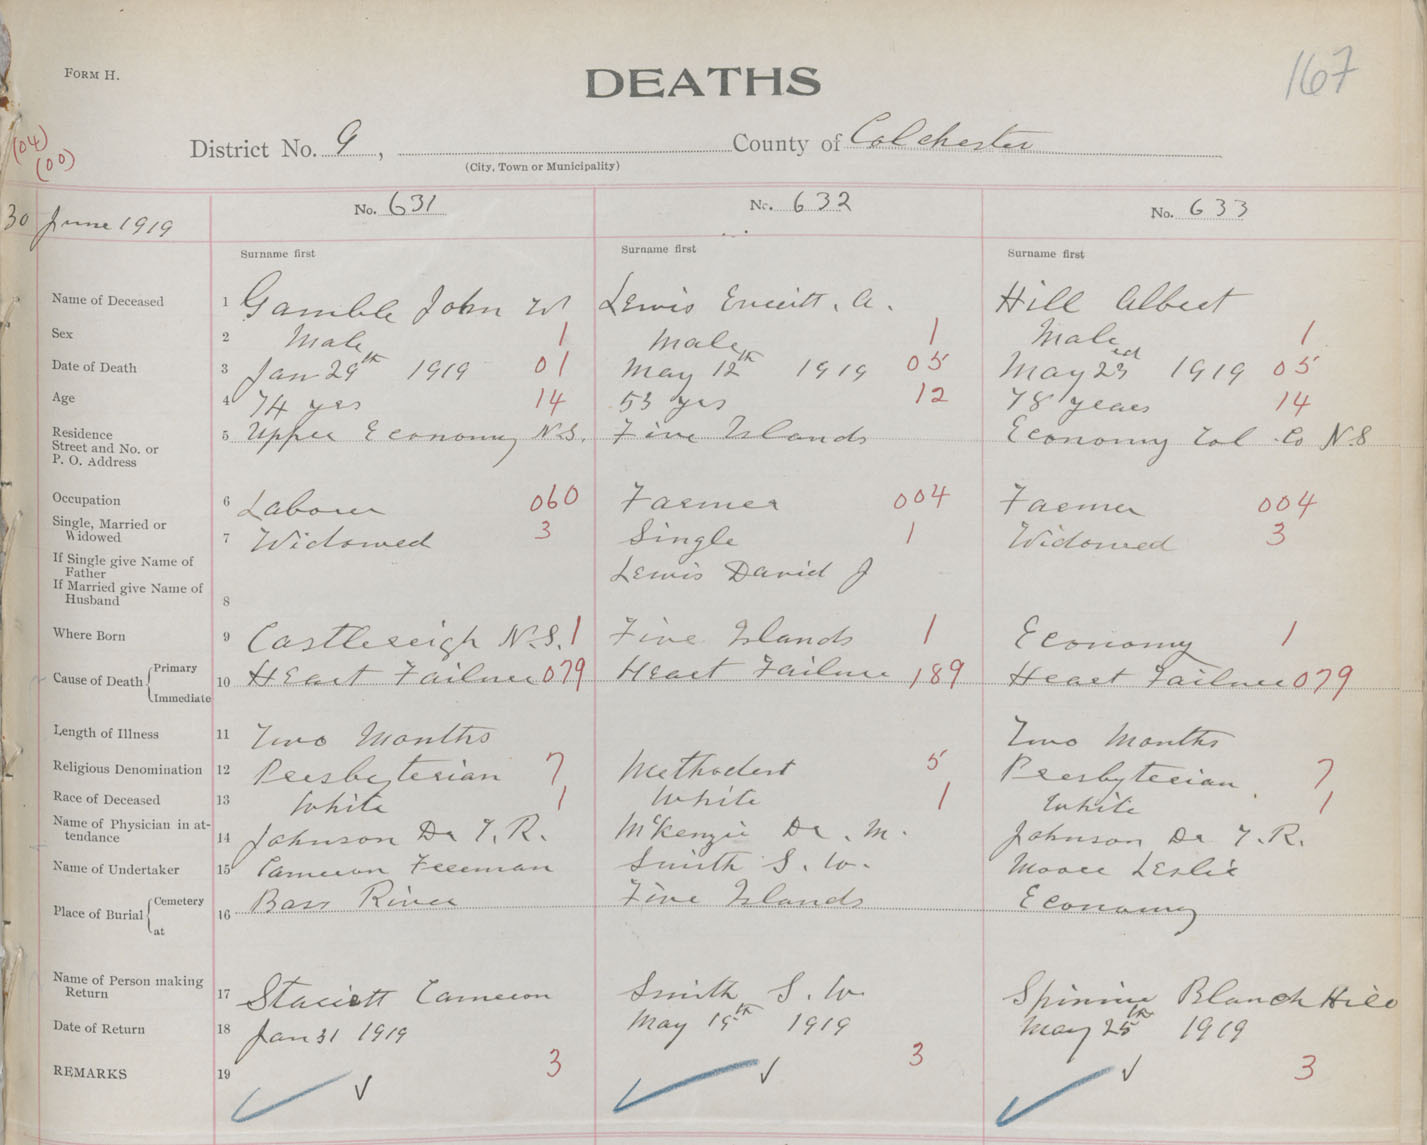 FORM H.
DEATHS
167
(04)
(00)
District No. 9, County of Colchester
(City, Town or Municipality)
30 June 1919
No. 631 No. 632 No. 633
Surname first Surname first Surname first
Name of Deceased 1 Gamble John W Lewis Everitt. A. Hill Albert
Sex 2 Male 1 Male 1 Male 1
Date of Death 3 Jan 29th 1919 01 May 12th 1919 05 May 23rd 1919 05
Age 4 74 yrs 14 53 yrs 12 78 years 14
Residence
Street and No. or
P. O. Address
5 Upper Economy N.S. Five Islands Economy Col Co N.S
Occupation 6 Labour 060 Farmer 004 Farmer 004
Single, Married or
Widowed
7 Widowed 3 Single 1 Widowed 3
If Single give Name of
Father
If Married give Name of
Husband
8 Lewis David J
Where Born 9 Castlereigh N.S. 1 Five Islands 1 Economy 1
Cause of Death Primary
Immediate
10 Heart Failure 079 Heart Failure 189 Heart Failure 079
Length of Illness 11 Two Months Two Months
Religious Denomination 12 Presbyterian 7 Methodist 5 Presbyterian 7
Race of Deceased 13 White 1 White 1 White 1
Name of Physician in at-
tendance
14 Johnson Dr T. R. McKenzie Dr. M. Johnson Dr T. R.
Name of Undertaker 15 Cameron Freeman Smith S. W. Moore Leslie
Place of Burial Cemetery
at
16 Bass River Five Islands Economy
Name of Person making
Return
17 Cameron Smith S. W. Blanch Hill
Date of Return 18 Jan 31 1919 May 19th 1919 May 25th 1919
REMARKS 19 3 3 3